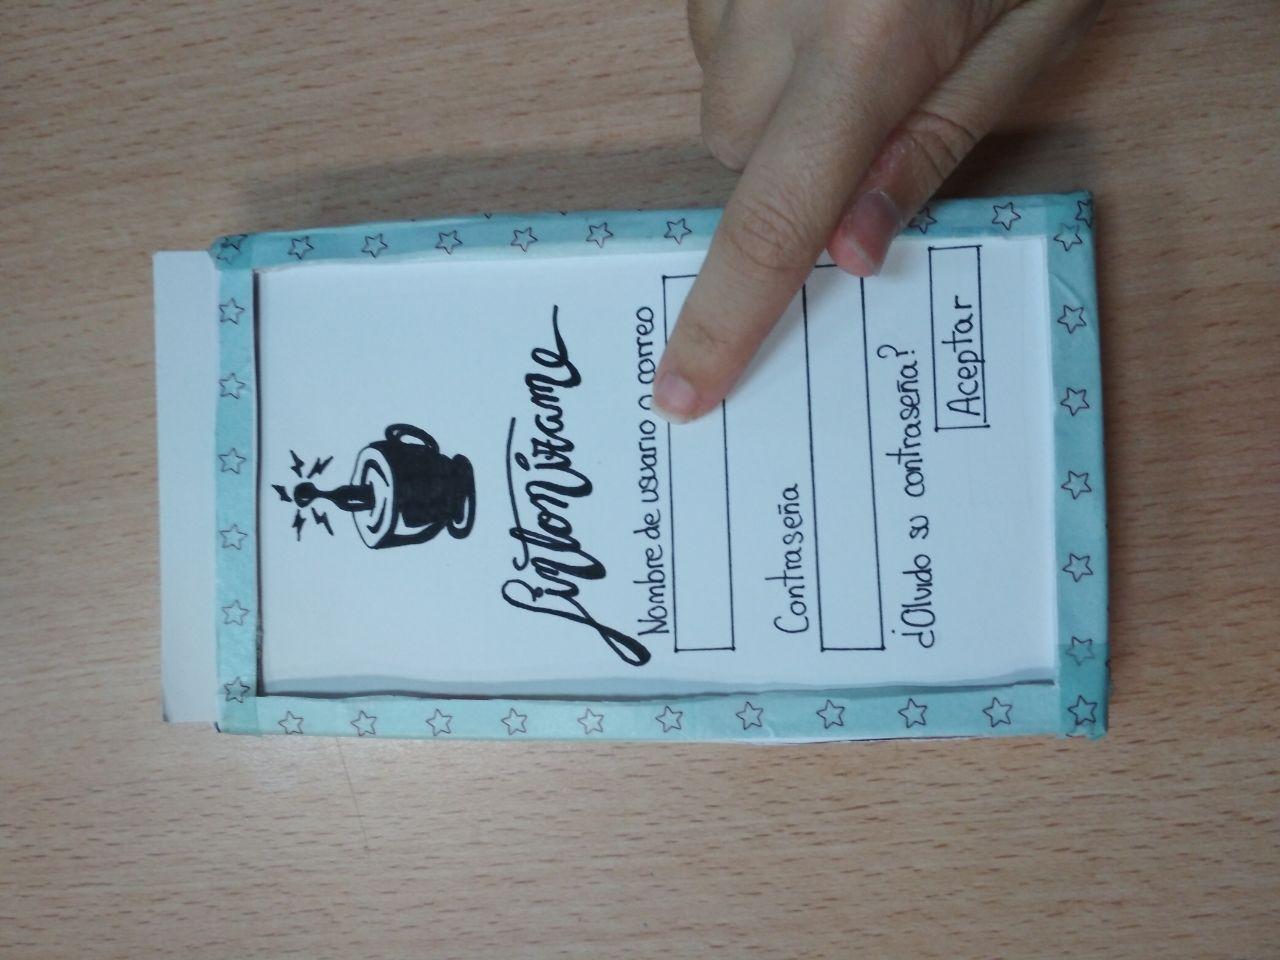 Sintonízame
Nombre de usuario o correo
Contraseña
¿Olvido su contraseña?
Aceptar